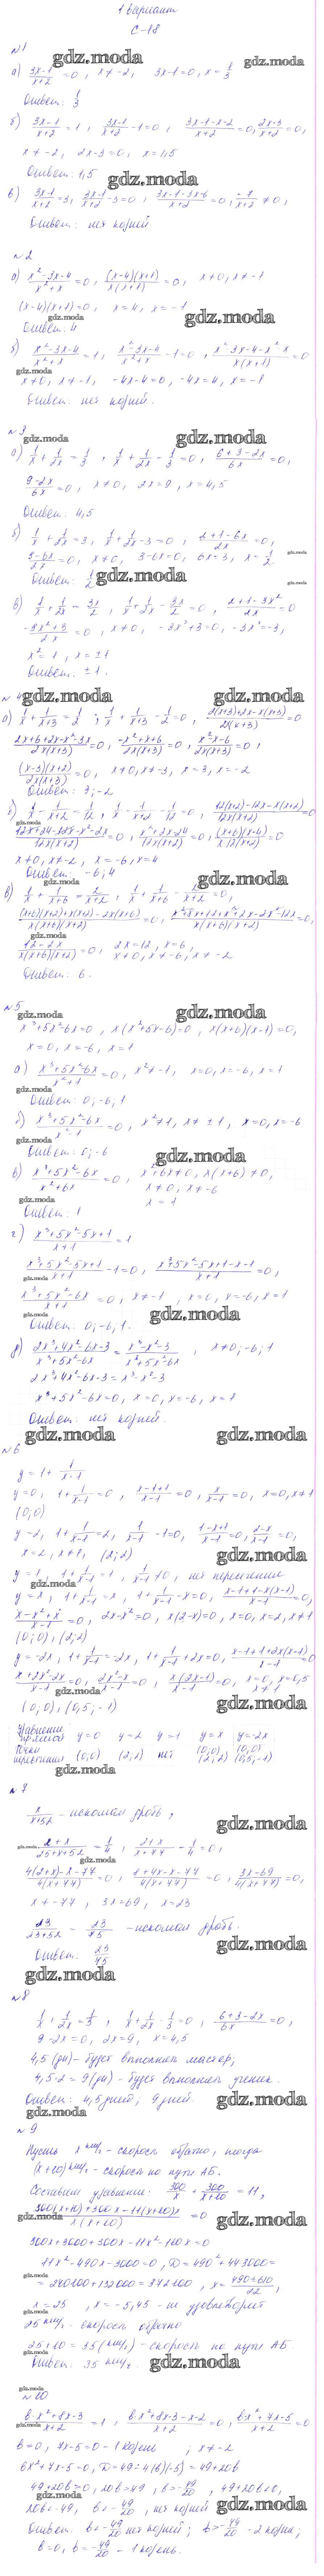 1 вариант
С-18
№1
а) (3x-1)/(x+2) = 0, x ≠ -2, 3x-1=0, x = 1/3
Ответ: 1/3
б) (3x-1)/(x+2) = 1, (3x-1)/(x+2) - 1 = 0, (3x-1-x-2)/(x+2) = 0, (2x-3)/(x+2) = 0,
x ≠ -2, 2x-3=0, x=1,5
Ответ: 1,5
в) (3x-1)/(x+2) = 3, (3x-1)/(x+2) - 3 = 0, (3x-1-3x-6)/(x+2) = 0, -7/(x+2) ≠ 0,
Ответ: нет корней
№2
а) (x²-3x-4)/(x²+x) = 0, (x-4)(x+1)/(x(x+1)) = 0, x≠0, x≠-1
(x-4)(x+1)=0, x=4, x=-1
Ответ: 4
б) (x²-3x-4)/(x²+x) = 1, (x²-3x-4)/(x²+x) - 1 = 0, (x²-3x-4-x²-x)/(x(x+1)) = 0
x≠0, x≠-1, -4x-4=0, -4x=4, x=-1
Ответ: нет корней.
№3
а) 1/x + 1/2x = 1/3, 1/x + 1/2x - 1/3 = 0, (6+3-2x)/6x = 0,
(9-2x)/6x = 0, x≠0, 2x=9, x=4,5
Ответ: 4,5
б) 1/x + 1/2x = 3, 1/x + 1/2x - 3 = 0, (2+1-6x)/2x = 0,
(3-6x)/2x = 0, x≠0, 3-6x=0, 6x=3, x=1/2
Ответ: 1/2
в) 1/x + 1/2x = 3x/2, 1/x + 1/2x - 3x/2 = 0, (2+1-3x²)/2x = 0
(-3x²+3)/2x = 0, x≠0, -3x²+3=0, -3x²=-3,
x²=1, x=±1
Ответ: ±1.
№4
а) 1/x + 1/(x+3) = 1/2, 1/x + 1/(x+3) - 1/2 = 0, (2(x+3)+2x-x(x+3))/(2x(x+3)) = 0
(2x+6+2x-x²-3x)/(2x(x+3)) = 0, (-x²+x+6)/(2x(x+3)) = 0, (x²-x-6)/(2x(x+3)) = 0,
(x-3)(x+2)/(2x(x+3)) = 0, x≠0, x≠-3, x=3, x=-2
Ответ: 3; -2
б) 1/x - 1/(x+2) = 1/12, 1/x - 1/(x+2) - 1/12 = 0, (12(x+2)-12x-x(x+2))/(12x(x+2)) = 0
(12x+24-12x-x²-2x)/(12x(x+2)) = 0, (x²+2x-24)/(12x(x+2)) = 0, (x+6)(x-4)/(x·12(x+2)) = 0
x≠0, x≠-2, x=-6, x=4
Ответ: -6; 4
в) 1/x + 1/(x+6) = 2/(x+2), 1/x + 1/(x+6) - 2/(x+2) = 0,
((x+6)(x+2)+x(x+2)-2x(x+6))/(x(x+6)(x+2)) = 0, (x²+8x+12+x²+2x-2x²-12x)/(x(x+6)(x+2)) = 0,
(12-2x)/(x(x+6)(x+2)) = 0, 2x=12, x=6,
x≠0, x≠-6, x≠-2
Ответ: 6.
№5
x³+5x²-6x=0, x(x²+5x-6)=0, x(x+6)(x-1)=0,
x=0, x=-6, x=1
а) (x³+5x²-6x)/(x²+1) = 0, x²≠-1, x=0, x=-6, x=1
Ответ: 0; -6; 1
б) (x³+5x²-6x)/(x²-1) = 0, x²≠1, x≠±1, x=0, x=-6
Ответ: 0; -6
в) (x³+5x²-6x)/(x²+6x) = 0, x²+6x≠0, x(x+6)≠0,
x≠0, x≠-6
x=1
Ответ: 1
г) (x³+5x²-5x+1)/(x+1) = 1
(x³+5x²-5x+1)/(x+1) - 1 = 0, (x³+5x²-5x+1-x-1)/(x+1) = 0,
(x³+5x²-6x)/(x+1) = 0, x≠-1, x=0, x=-6, x=1
Ответ: 0; -6; 1.
д) (2x³+4x²-6x-3)/(x³+5x²-6x) = (x³-x²-3)/(x³+5x²-6x), x≠0; -6; 1
2x³+4x²-6x-3=x³-x²-3
x³+5x²-6x=0, x=0, x=-6, x=1
Ответ: нет корней.
№6
y = 1 + 1/(x-1)
y=0, 1+1/(x-1)=0, (x-1+1)/(x-1)=0, x/(x-1)=0, x=0, x≠1
(0;0)
y=2, 1+1/(x-1)=2, 1/(x-1)-1=0, (1-x+1)/(x-1)=0, (2-x)/(x-1)=0,
x=2, x≠1, (2;2)
y=1, 1+1/(x-1)=1, 1/(x-1)≠0, нет пересечения
y=x, 1+1/(x-1)=x, 1+1/(x-1)-x=0, (x-1+1-x(x-1))/(x-1)=0,
(x-x²+x)/(x-1)=0, 2x-x²=0, x(2-x)=0, x=0, x=2, x≠1
(0;0), (2;2)
y=-2x, 1+1/(x-1)=-2x, 1+1/(x-1)+2x=0, (x-1+1+2x(x-1))/(x-1)=0
(x+2x²-2x)/(x-1)=0, (2x²-x)/(x-1)=0, x(2x-1)/(x-1)=0, x=0, x=0,5
x≠1
(0;0), (0,5;-1)
Уравнение прямой y=0 y=2 y=1 y=x y=-2x
Точки пересечения (0;0) (2;2) нет (0;0) (2;2) (0;0) (0,5;-1)
№7
x/(x+52) - искомая дробь,
(2+x)/(25+x+52) = 1/4, (2+x)/(x+77) - 1/4 = 0,
(4(2+x)-x-77)/(4(x+77)) = 0, (8+4x-x-77)/(4(x+77)) = 0, (3x-69)/(4(x+77)) = 0,
x≠-77, 3x=69, x=23
23/(23+52) = 23/75 - искомая дробь.
Ответ: 23/75
№8
1/x + 1/2x = 1/3, 1/x + 1/2x - 1/3 = 0, (6+3-2x)/6x = 0,
9-2x=0, 2x=9, x=4,5
4,5 (дн) - будет выполнять мастер;
4,5·2=9 (дн) - будет выполнять ученик.
Ответ: 4,5 дней; 9 дней.
№9
Пусть x км/ч - скорость обратно, тогда
(x+10) км/ч - скорость по пути АБ.
Составим уравнение: 300/x + 300/(x+10) = 11,
(300(x+10)+300x-11(x+10)x)/(x(x+10)) = 0
300x+3000+300x-11x²-110x=0
11x²-490x-3000=0, D=490²+44·3000=
=240100+132000=372100, x=(490±610)/22,
x=25, x=-5,45 - не удовлетворит
25 км/ч - скорость обратно
25+10=35 (км/ч) - скорость по пути АБ
Ответ: 35 км/ч.
№10
(bx²+8x-3)/(x+2) = 1, (bx²+8x-3-x-2)/(x+2) = 0, (bx²+7x-5)/(x+2) = 0
b=0, 7x-5=0 - 1 корень; x≠-2
bx²+7x-5=0, D=49-4(b)(-5)=49+20b
49+20b=0, 20b=-49, b=-49/20, 49+20b<0,
20b<-49, b<-49/20, нет корней
Ответ: b<-49/20 нет корней; b>-49/20 - 2 корня;
b=0, b=-49/20 - 1 корень.
gdz.moda